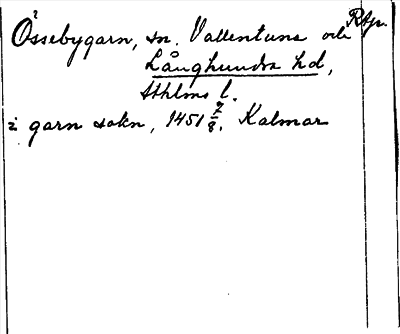 Össebygarn, sn. Vallentuna och Rtjr.
Långhundra hd,
Sthlms l.
i garn sokn, 1451 7/8. Kalmar